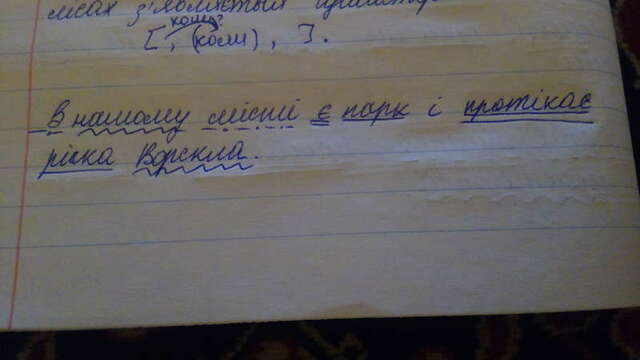 лісах з'являються
коли?
[ , (коли), ].
В нашому місті є парк і протікає
річка Ворскла.